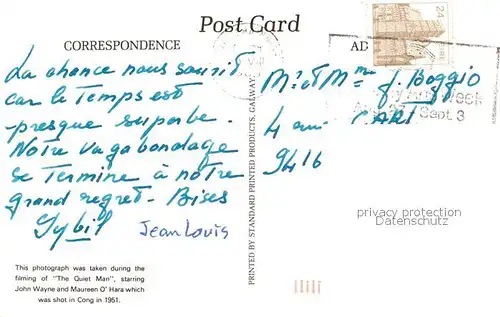 Post Card
CORRESPONDENCE
AD
24
La chance nous sourit
car le Temps est
presque superbe.
Notre vagabondage
se Termine à notre
grand regret. Bises
Sybil Jean Louis
Mr et Mme J. Boggio
4
9416
Week
Sept 3
privacy protection
Datenschutz
This photograph was taken during the
filming of "The Quiet Man", starring
John Wayne and Maureen O' Hara which
was shot in Cong in 1951.
PRINTED BY STANDARD PRINTED PRODUCTS, GALWAY.